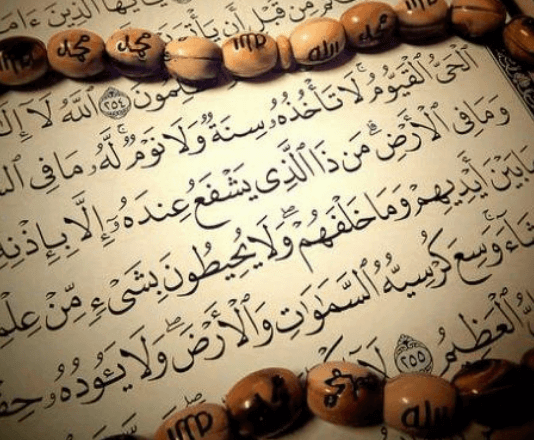 من قبل أن يأ
محمد محمد الله محمد
لِمُونَ ٢٥٤ ٱللَّهُ لَآ إِلَ
ٱلْحَىُّ ٱلْقَيُّومُ ۚ لَا تَأْخُذُهُۥ سِنَةٌ وَلَا نَوْمٌ ۚ لَّهُۥ مَا فِى ٱلسَّ
وَمَا فِى ٱلْأَرْضِ ۗ مَن ذَا ٱلَّذِى يَشْفَعُ عِندَهُۥٓ إِلَّا بِإِذْنِهِ
مَا بَيْنَ أَيْدِيهِمْ وَمَا خَلْفَهُمْ ۖ وَلَا يُحِيطُونَ بِشَىْءٍ مِّنْ عِلْمِ
شَآءَ ۚ وَسِعَ كُرْسِيُّهُ ٱلسَّمَٰوَٰتِ وَٱلْأَرْضَ ۖ وَلَا يَـُٔودُهُۥ حِفْ
ٱلْعَظِيمُ ٢٥٥ لَآ
محمد الله